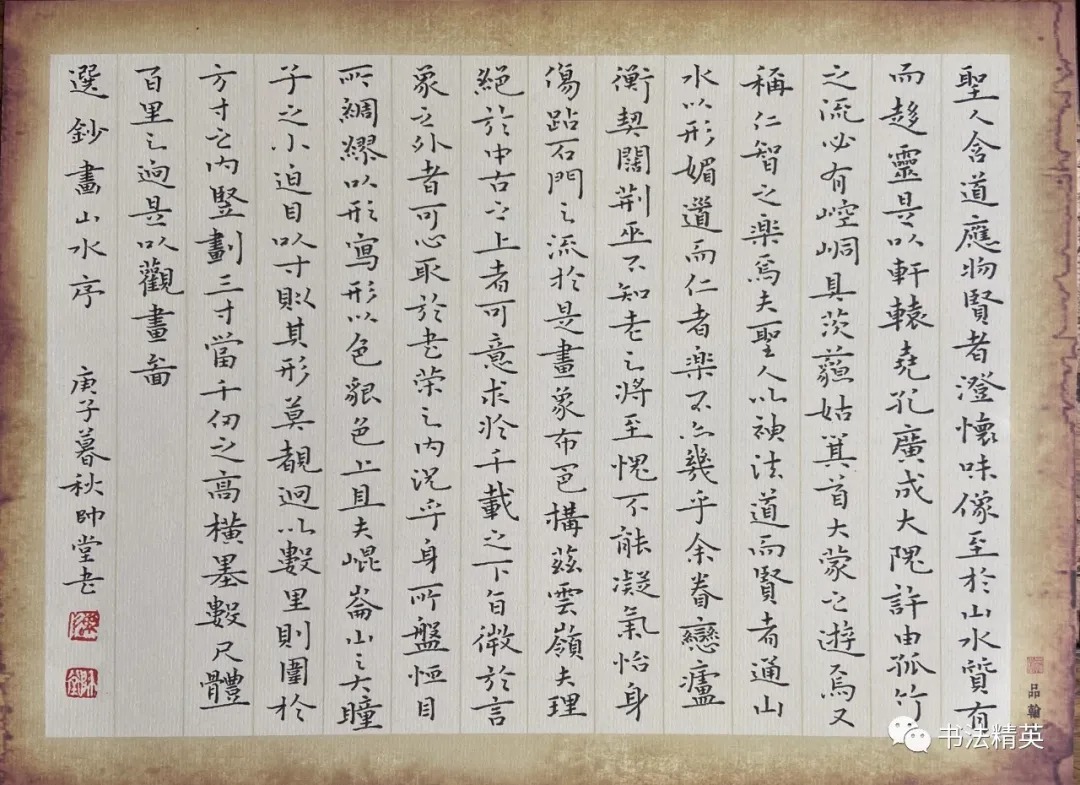 聖人含道應物賢者澄懷味像至於山水質有
而趍靈是以軒轅堯孔廣成大隗許由孤竹
之流必有崆峒具茨藐姑箕首大蒙之遊焉又
稱仁智之樂焉夫聖人以神法道而賢者通山
水以形媚道而仁者樂不亦幾乎余眷戀廬
衡契闊荆巫不知老之將至愧不能凝氣怡身
傷跕石門之流於是畫象布色構茲雲嶺夫理
絕於中古之上者可意求於千載之下旨微於言
象之外者可心取於書策之內況乎身所盤恒目
所綢繆以形寫形以色貌色也且夫崐崙山之大瞳
子之小迫目以寸則其形莫覩迥以數里則圍於
方寸之內豎劃三寸當千仞之高橫墨數尺體
百里之迥是以觀畫啚
選鈔畫山水序 庚子暮秋帥堂书
品翰
书法精英